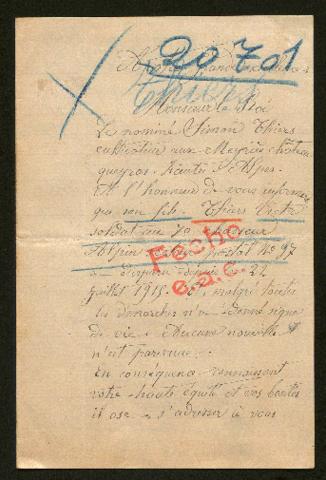 20701
Thiers
Monsieur le Roi
Le nommé Simon Thiers
cultivateur aux Meyriès château
queyras. Hautes Alpes.
A l'honneur de vous informer
que son fils. Thiers
soldat au 7e chasseur
Alpin secteur postal No 97
a disparu depuis le 22
juillet 1915. et, malgré toutes
les démarches n'a donné signe
de vie. Aucune nouvelle
n'est parvenue.
En conséquence connaissant
votre haute équité et vos bontés
il ose s'adresser à vous
Fecho
e.a.c.